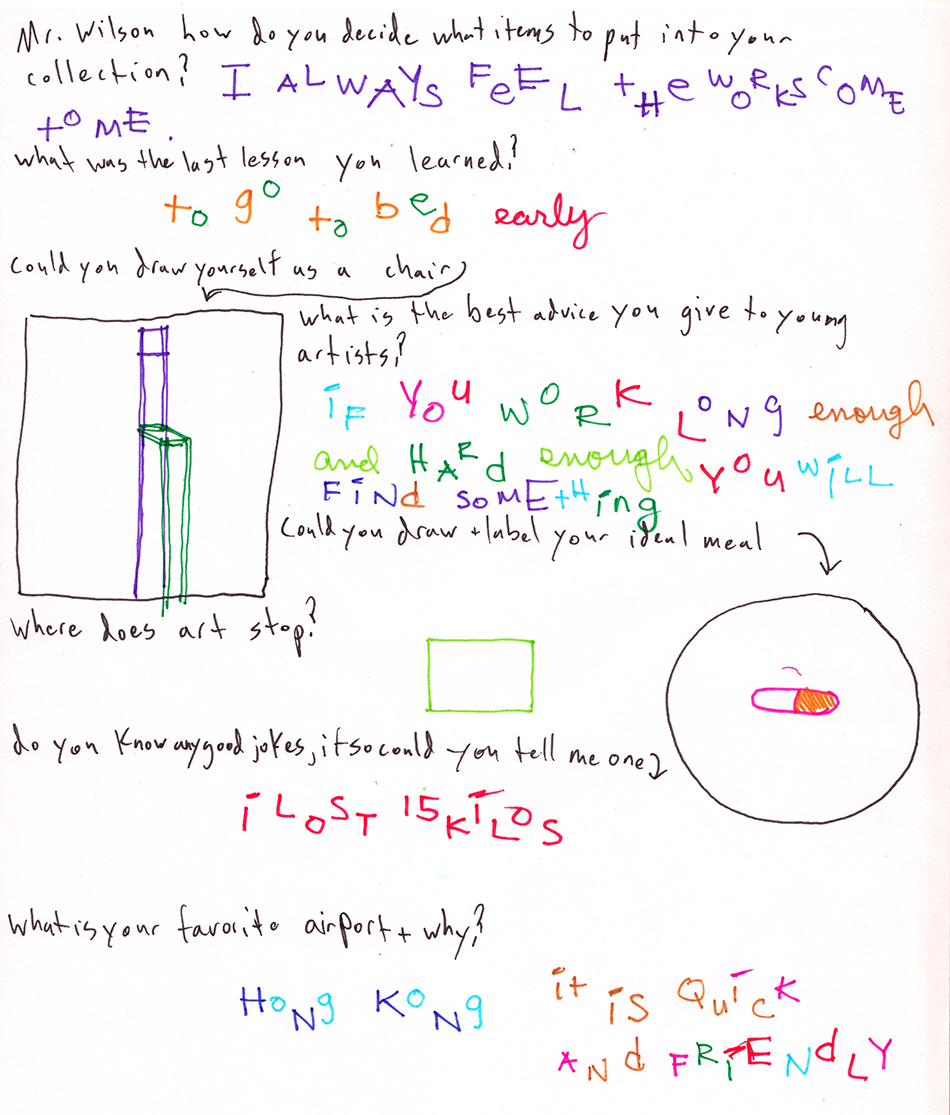 Mr. Wilson how do you decide what items to put into your
collection? I ALWAYS FeEL tHe WORKS COME
to ME.
what was the last lesson you learned?
to go to bed early
Could you draw yourself as a chair
what is the best advice you give to young
artists?
iF YOU WORK LONg enough
and HARd enough YOU WiLL
FiNd SOMEtHing
Could you draw + label your ideal meal
where does art stop?
do you know any good jokes, if so could you tell me one
i LOST 15 KiLOS
What is your favorite airport + why?
HONg KONg it iS QUiCK
ANd FRiENdLY